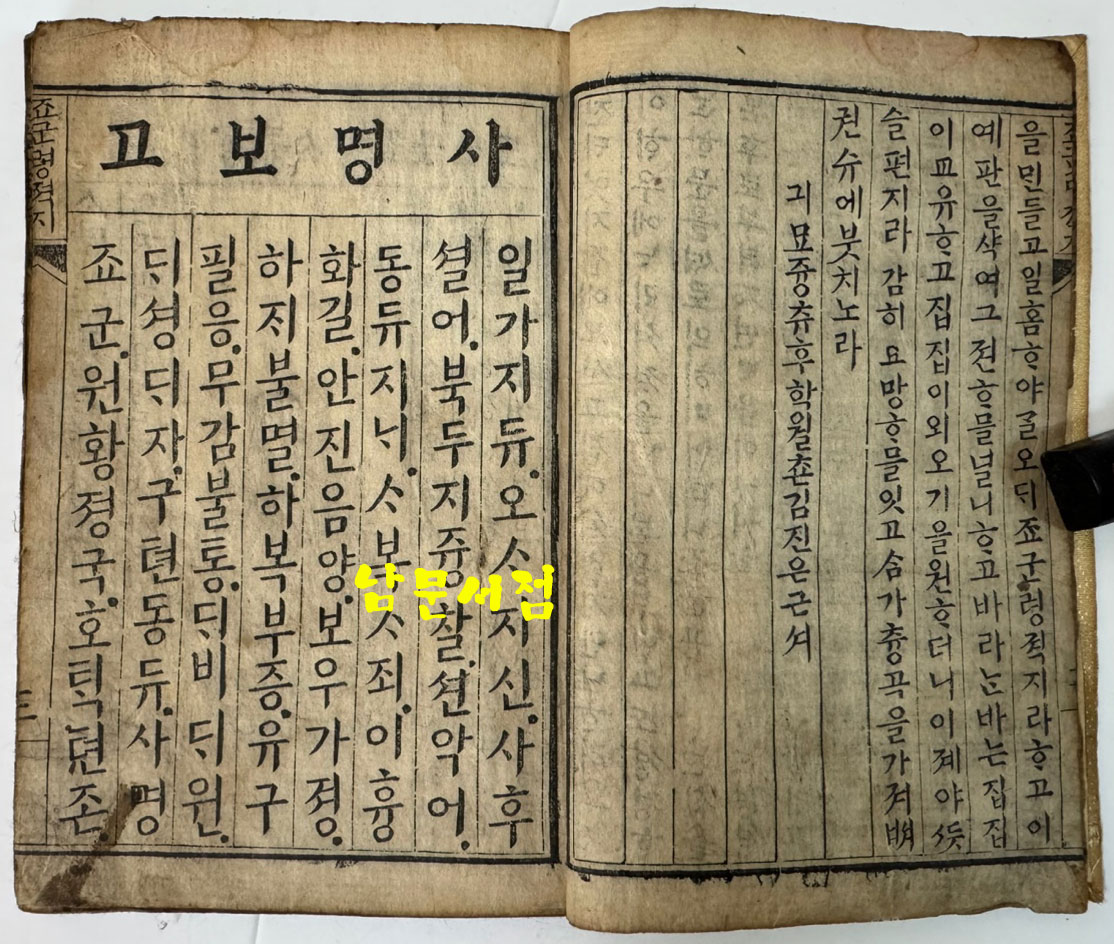 을민들고일홈ᄒᆞ야ᄀᆞᆯ오ᄃᆡ죠군령젹지라ᄒᆞ고이
예판을샥여그젼ᄒᆞ믈널니ᄒᆞ고바라ᄂᆞᆫ바는집집
이교유ᄒᆞ고집집이외오기을원ᄒᆞ더니이졔야ᄯᅳᆺ
슬편지라감히요망ᄒᆞ믈잇고ᄉᆞᆷ가츙곡을가져
권슈에붓치노라
긔묘즁츄후학월쵼김진은근셔
사명보고
일가지듀.오ᄉᆞ지신.사후
셜어.북두지즁.찰션악어.
동듀지ᄂᆡ.ᄉᆞ복ᄉᆞ죄.이흉
화길.안진음양.보우가졍.
하지불멸.하복부증.유구
필응.무감불통.ᄃᆡ비ᄃᆡ원.
ᄃᆡ셩ᄃᆡ자.구텬동듀.사명
죠군.원황졍국.호ᄐᆡᆨ텬존.
죠군령젹지
남문서점